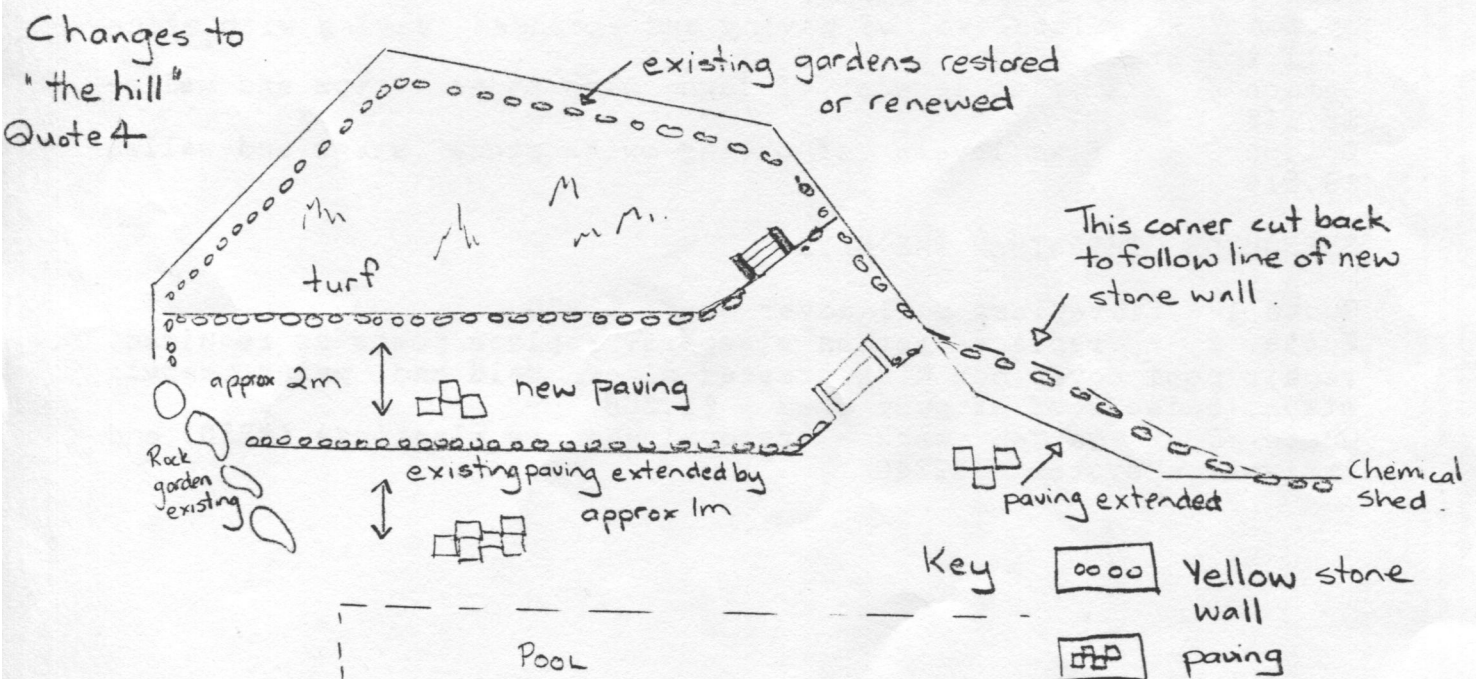 Changes to
"the hill"
Quote 4
existing gardens restored
or renewed
This corner cut back
to follow line of new
stone wall
turf
approx 2m
new paving
Rock
garden
existing
existing paving extended by
approx 1m
paving extended
Chemical
Shed.
Key
Yellow stone
wall
paving
POOL